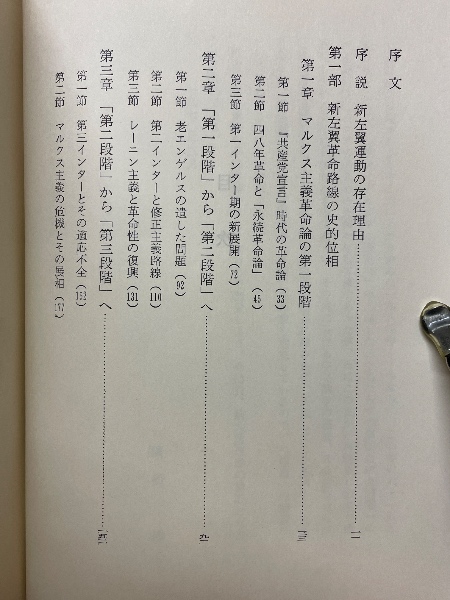 序文
序説 新左翼運動の存在理由………一一
第一部 新左翼革命路線の史的位相
第一章 マルクス主義革命論の第一段階………三一
第一節 『共産党宣言』時代の革命論（33）
第二節 四八年革命と「永続革命論」（45）
第三節 第一インター期の新展開（72）
第二章 「第一段階」から「第二段階」へ………九一
第一節 老エンゲルスの遺した問題（92）
第二節 第二インターと修正主義路線（110）
第三節 レーニン主義と革命性の復興（131）
第三章 「第二段階」から「第三段階」へ………
第一節 第三インターとその適応不全（152）
第二節 マルクス主義の危機とその展相（177）